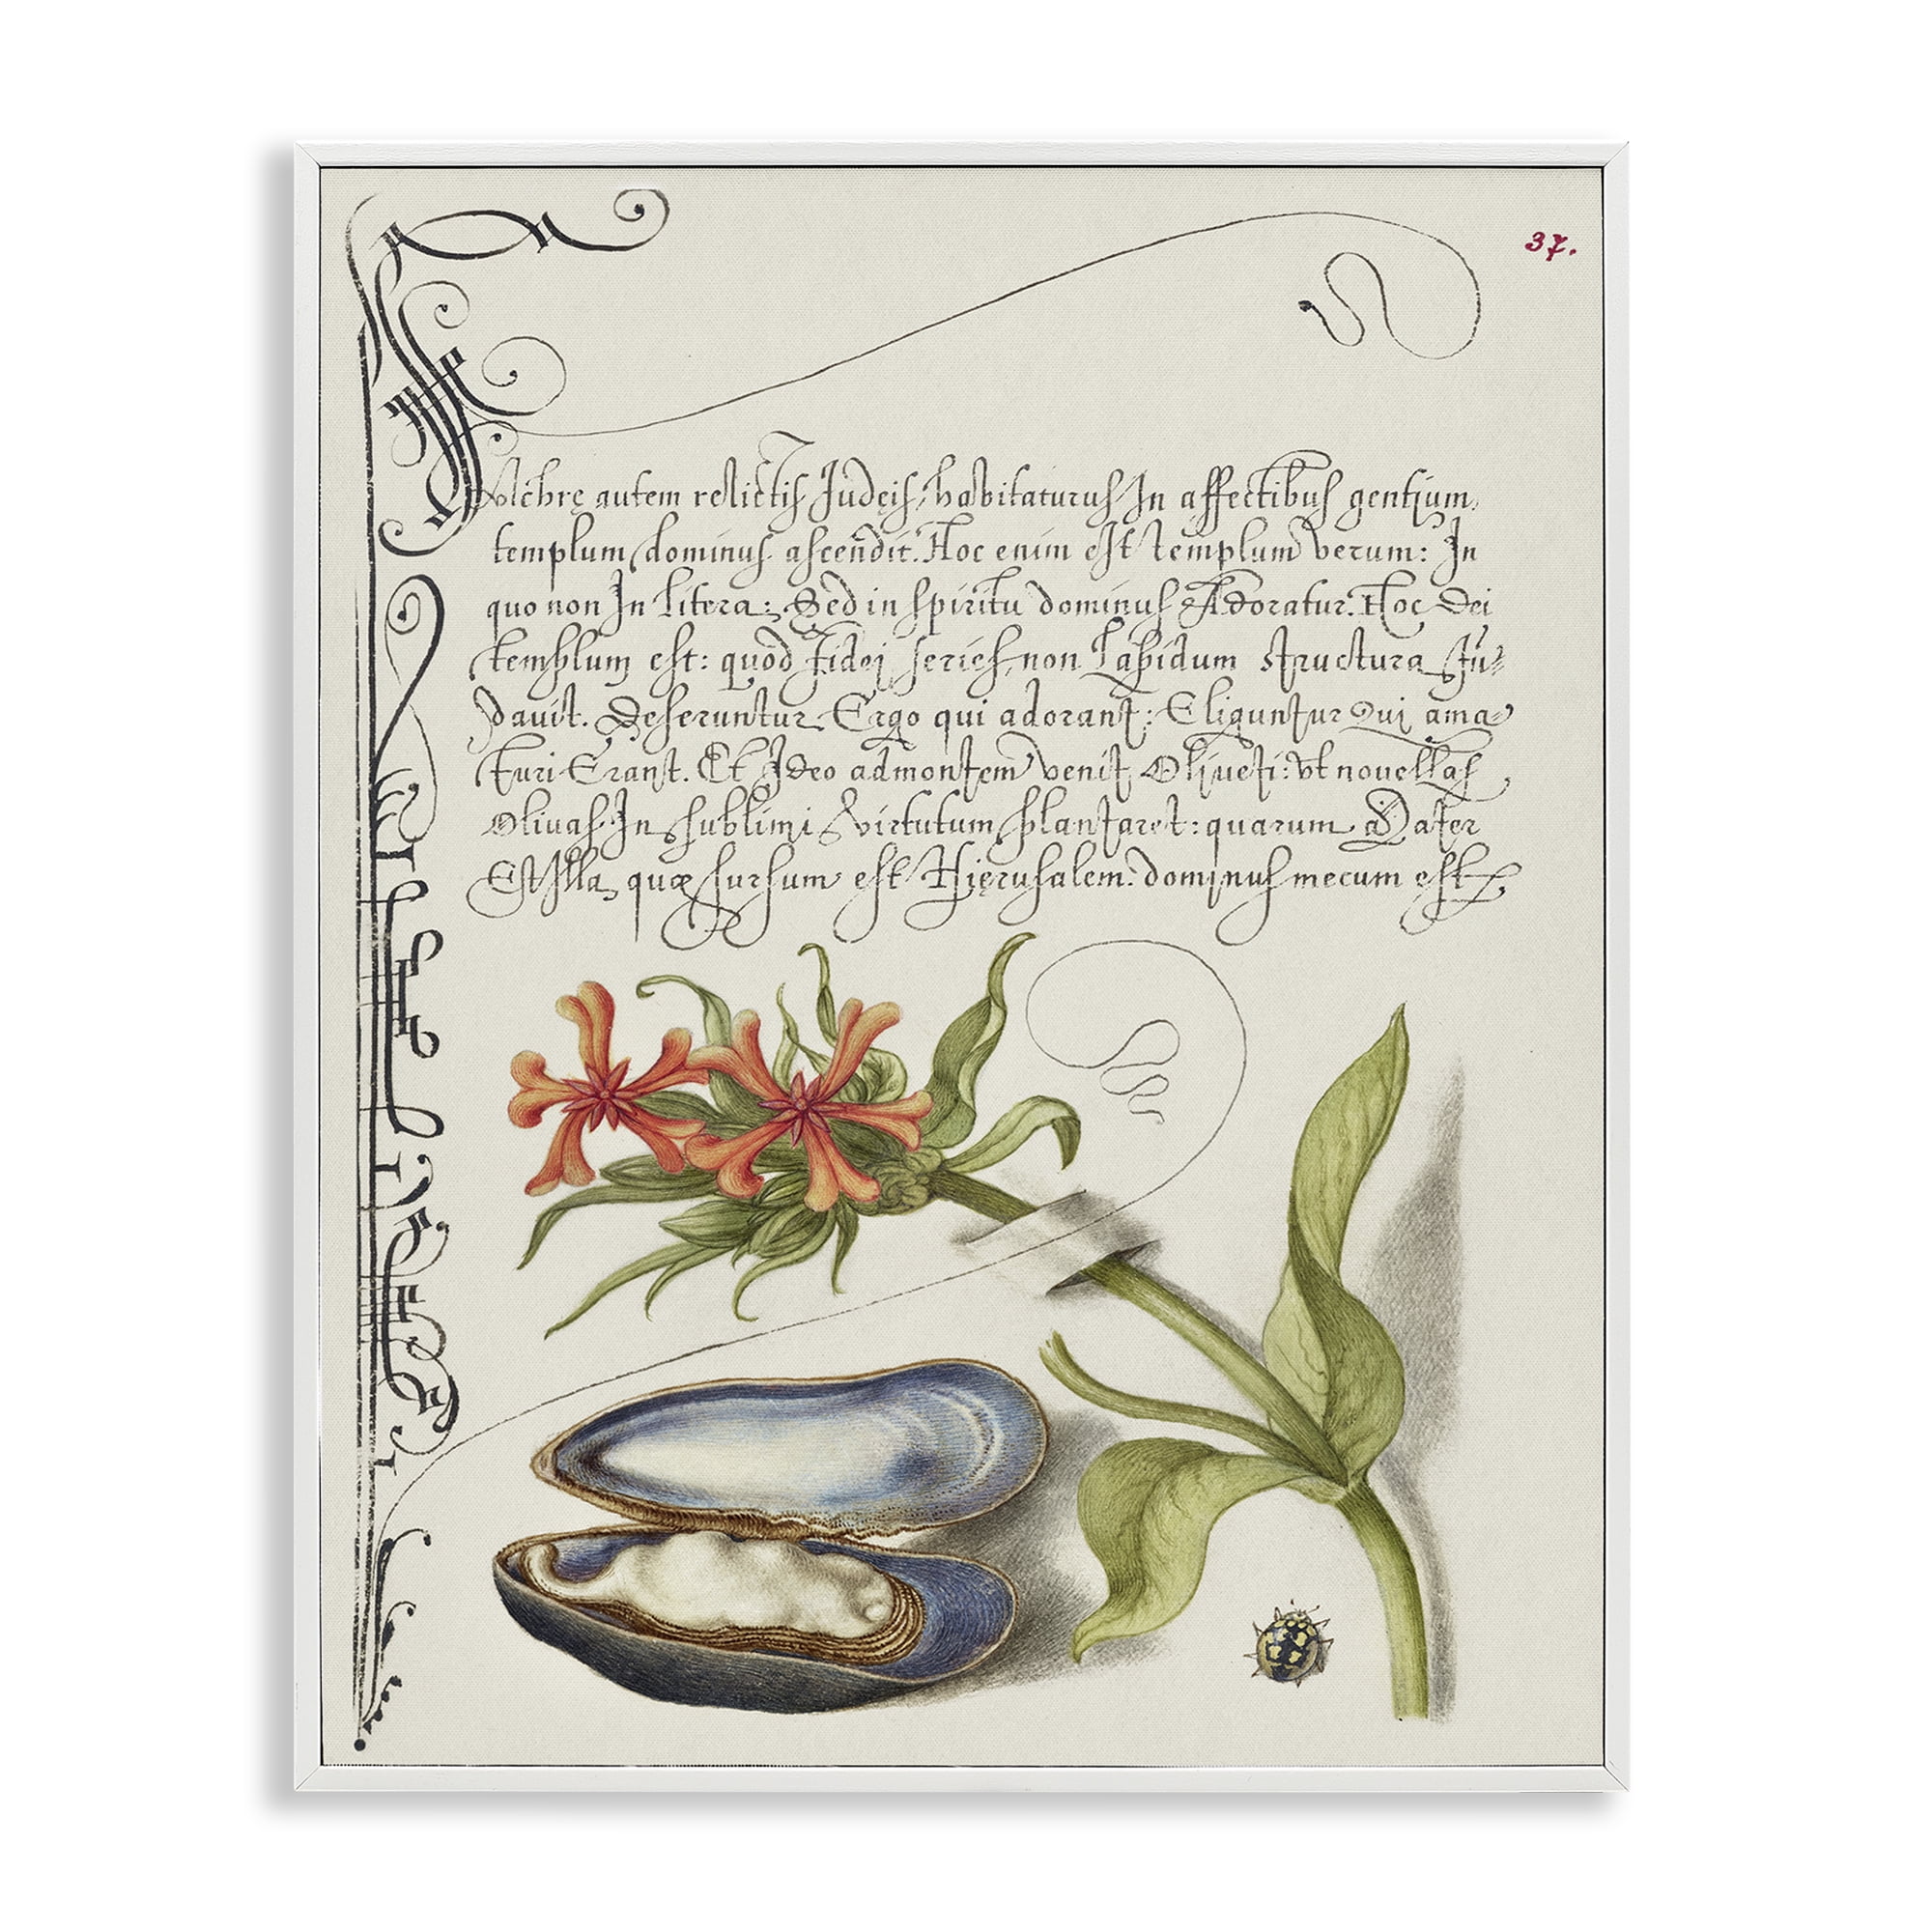 37.
Pulchrę autem relictis Iudeis, habitaturus In affectibus gentium,
templum dominus ascendit. Hoc enim est templum verum: In
quo non In litera: Sed in spiritu dominus Adoratur. Hoc Dei
templum est: quod fidei series, non Lapidum structura fū=
dauit. Deseruntur Ergo qui adorant: Eliguntur Qui ama=
turi Erant. Et Ideo ad montem venit Oliueti: vt nouellas
Oliuas In sublimi virtutum plantaret: quarum Mater
Est Illa, quæ sursum est Hierusalem. dominus mecum est